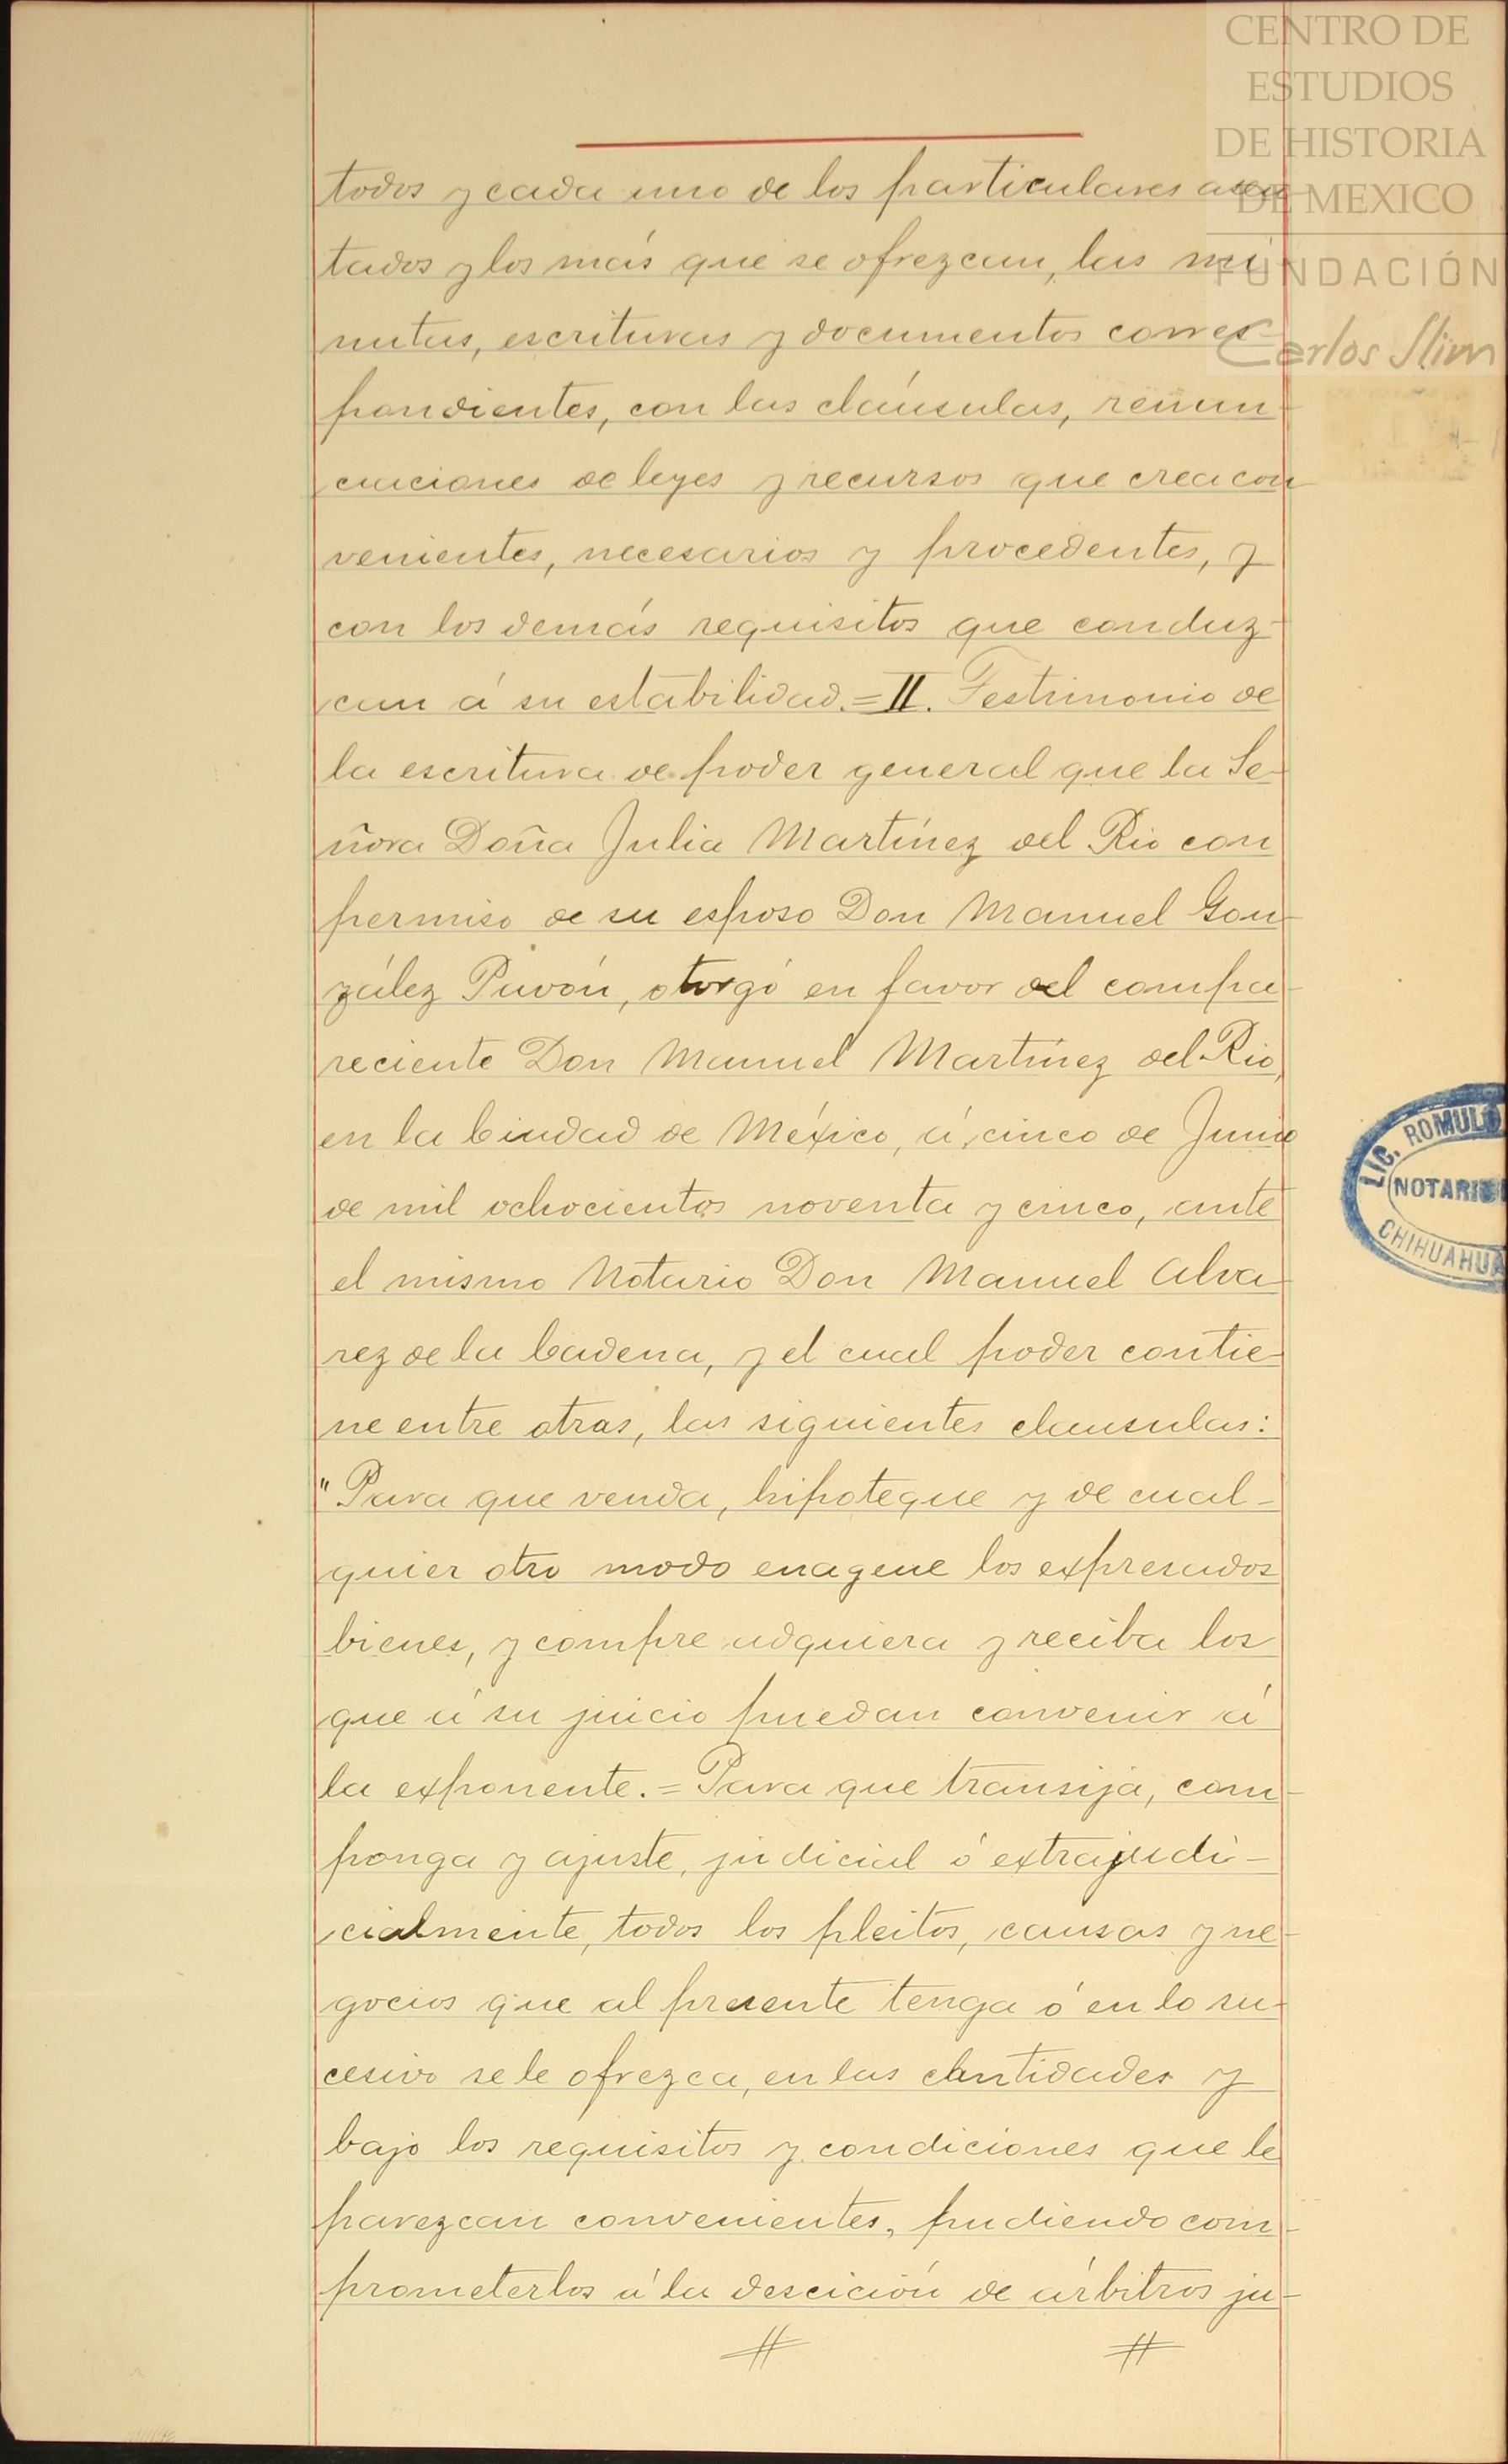 CENTRO DE
ESTUDIOS
DE HISTORIA
DE MEXICO
FUNDACIÓN
Carlos Slim
todos y cada uno de los particulares
tados y los más que se ofrezcan, las mi
nutas, escrituras y documentos corres-
pondientes, con las cláusulas, renun-
ciaciones de leyes y recursos que crea con
venientes, necesarios y procedentes, y
con los demás requisitos que conduz-
can á su estabilidad.=II. Testimonio de
la escritura de poder general que la Se-
ñora Doña Julia Martínez del Rio con
permiso de su esposo Don Manuel Gon-
zález Pavón, otorgó en favor del compa-
reciente Don Manuel Martínez del Rio,
en la Ciudad de México, á cinco de Junio
de mil ochocientos noventa y cinco, ante
el mismo Notario Don Manuel Alva-
rez de la Cadena, y el cual poder contie-
ne entre otras, las siguientes clausulas:
"Para que venda, hipoteque y de cual-
quier otro modo enagene los expresados
bienes, y compre adquiera y reciba los
que á su juicio puedan convenir á
la exponente.=Para que transija, com-
ponga y ajuste, judicial ó extrajudi-
cialmente, todos los pleitos, causas y ne-
gocios que al presente tenga ó en lo su-
cesivo se le ofrezca, en las cantidades y
bajo los requisitos y condiciones que le
parezcan convenientes, pudiendo com-
prometerlos á la descición de árbitros ju-
LIC. ROMULO
NOTARI
CHIHUAHUA